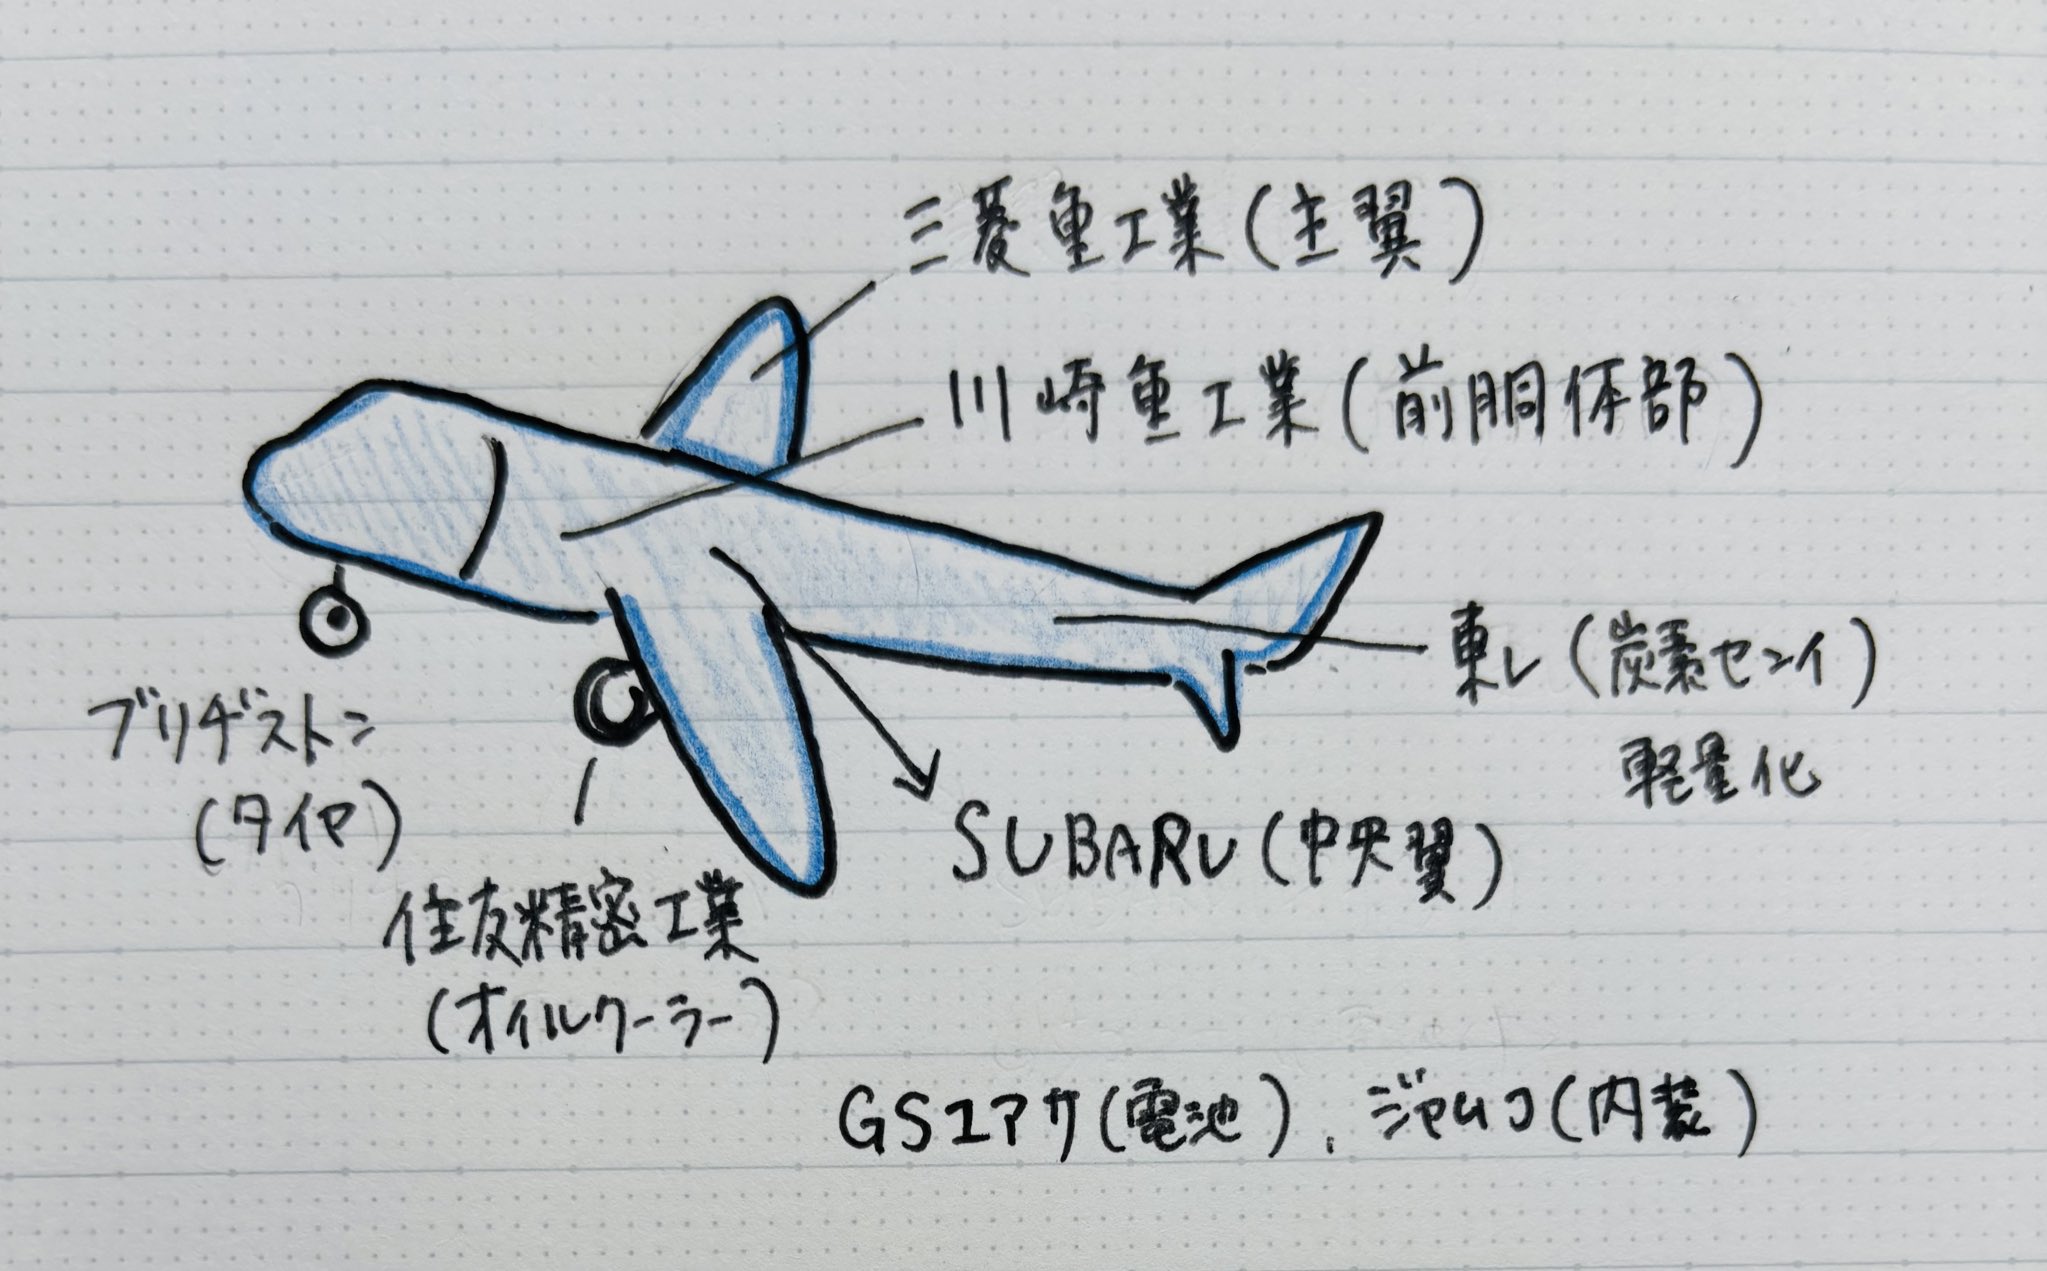 三菱重工業(主翼)
川崎重工業(前胴体部)
東レ(炭素センイ)
軽量化
ブリヂストン
(タイヤ)
SUBARU(中央翼)
住友精密工業
(オイルクーラー)
GSユアサ(電池)、ジャムコ(内装)